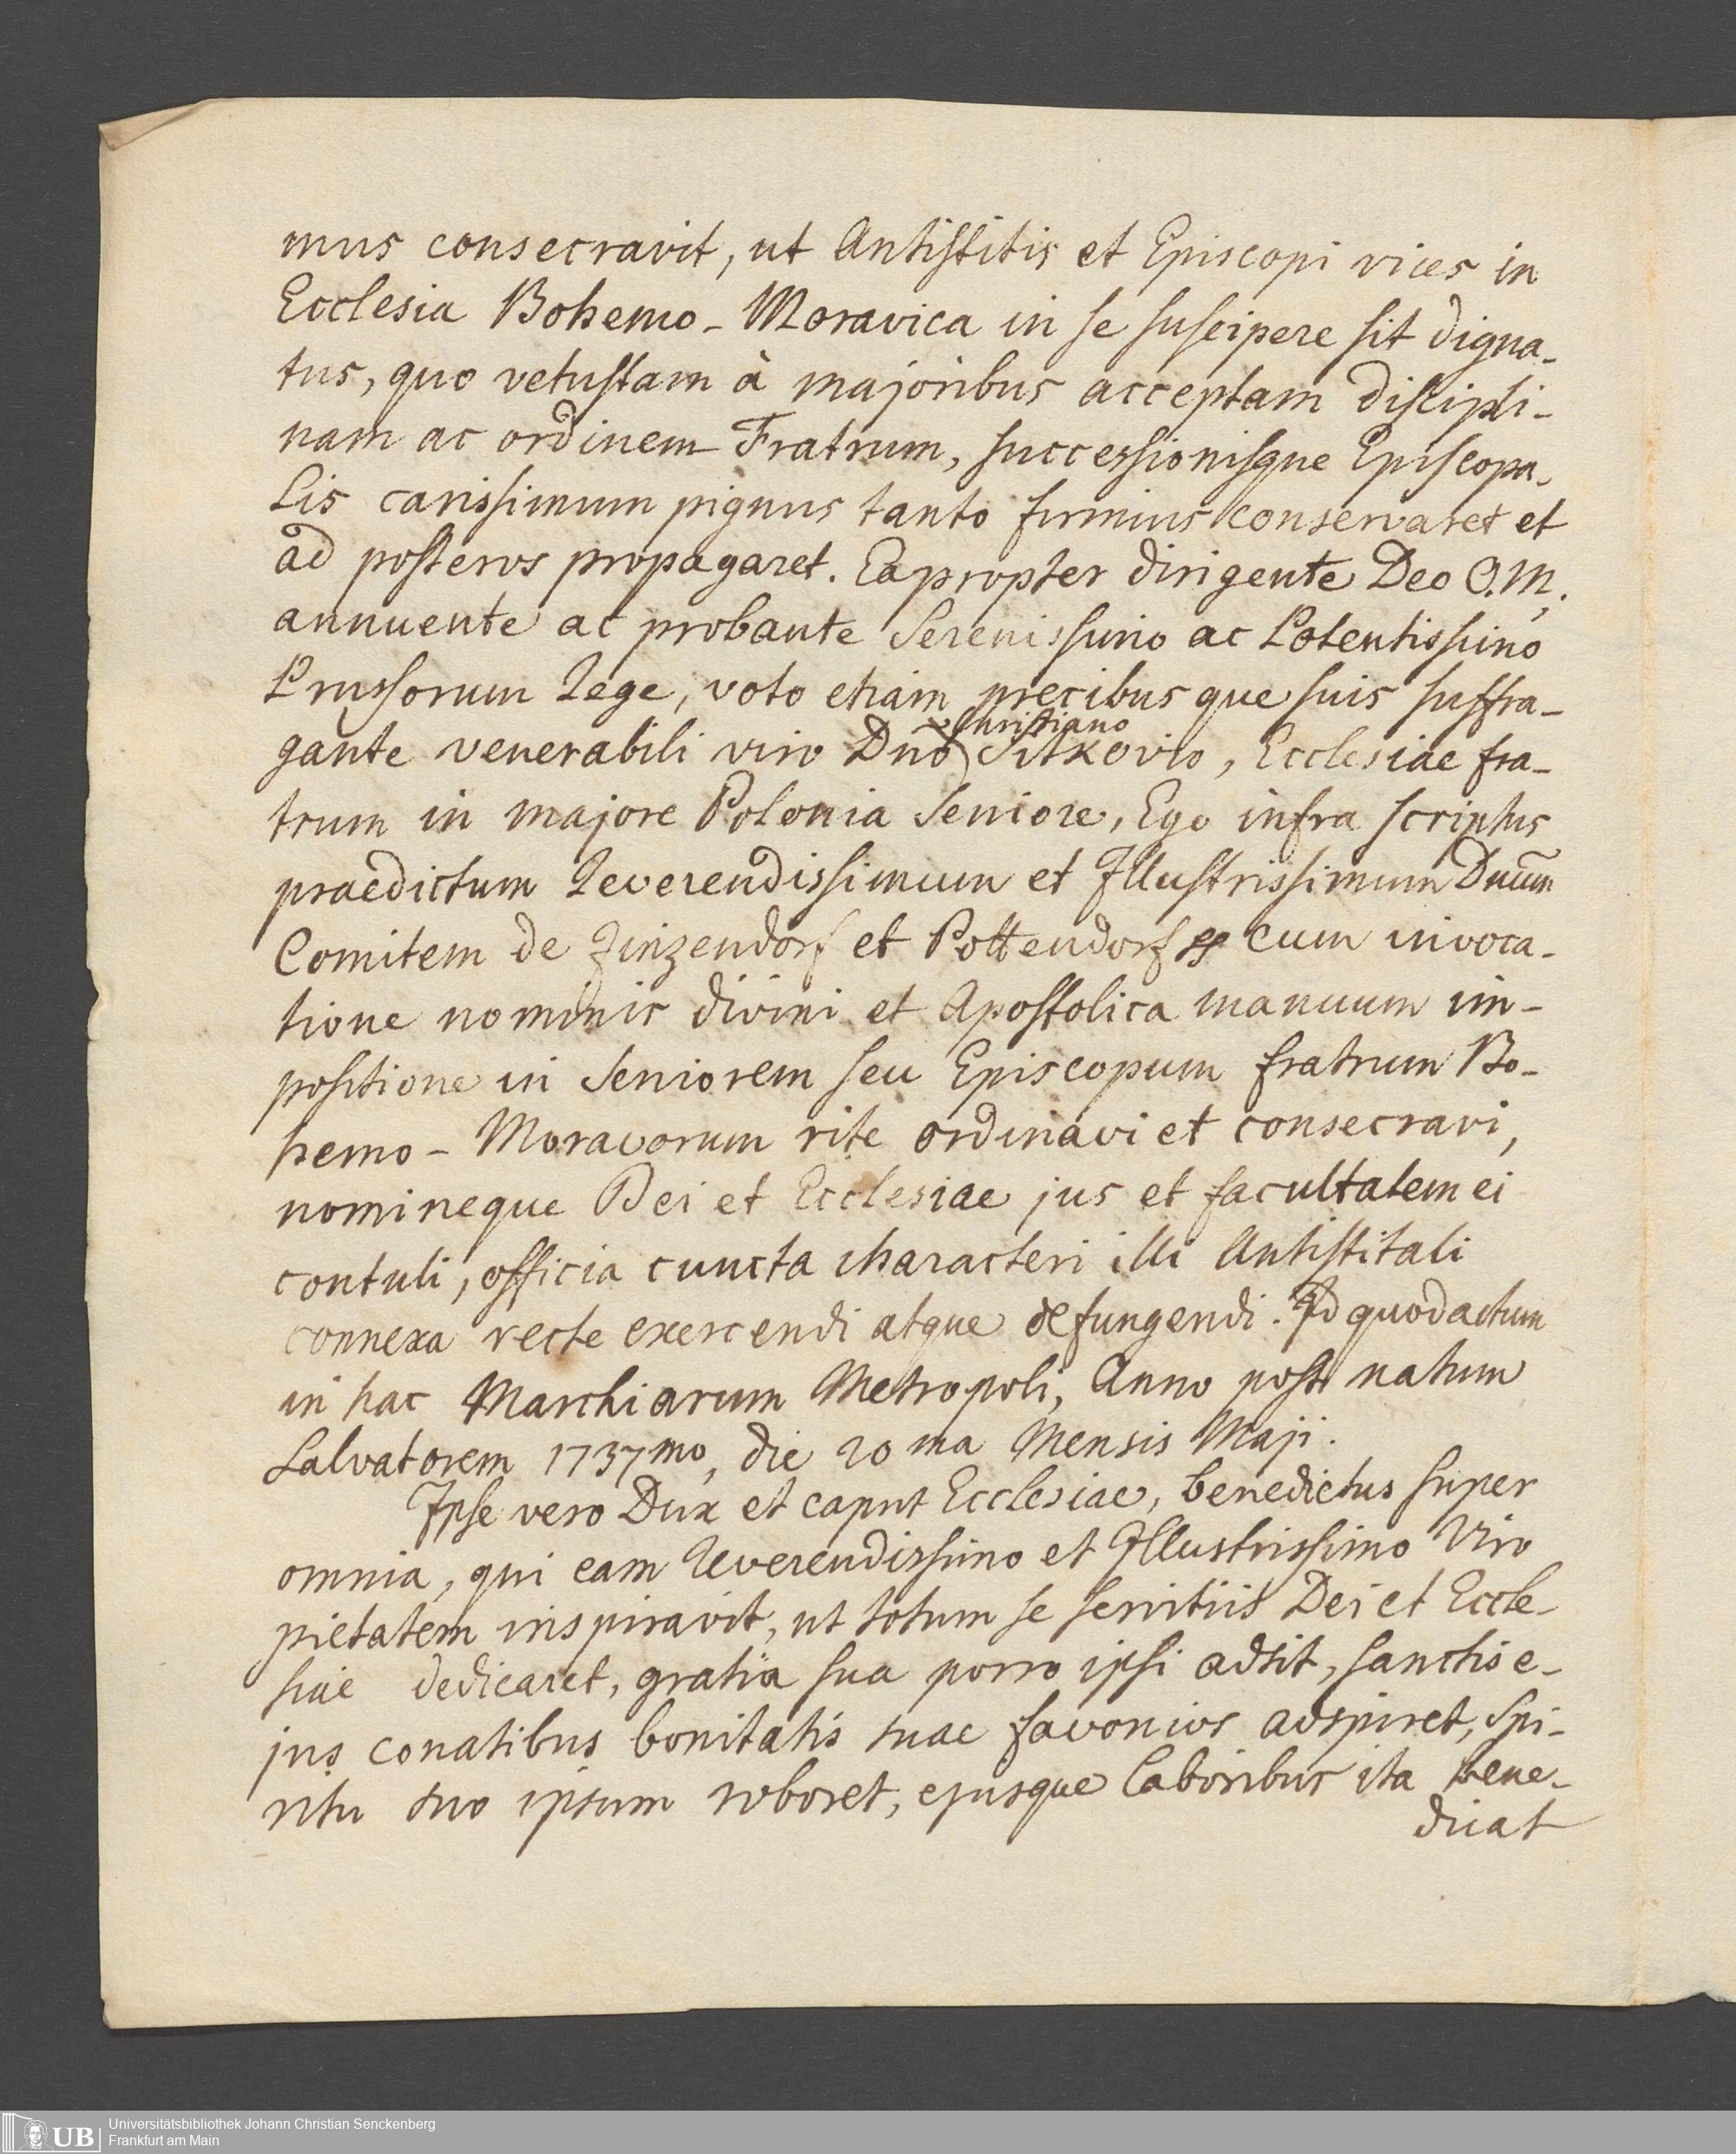 mus consecravit, ut Antistitis et Episcopi vices in
Ecclesia Bohemo-Moravica in se suscipere sit digna-
tus, quo vetustam à majoribus acceptam discipli-
nam ac ordinem Fratrum, successionisque Episcopa-
lis carissimum pignus tanto firmius conservaret et
ad posteros propagaret. Eapropter dirigente Deo O.M.
annuente ac probante Serenissimo ac Potentissimo
Prussorum Rege, voto etiam precibusque suis suffra-
Christiano
gante venerabili viro Dno Sitkovio, Ecclesiae fra-
trum in majore Polonia Seniore, Ego infra scriptus
praedictum Reverendissimum et Illustrissimum Dnum
Comitem de Zinzendorf et Pottendorf cum invoca-
tione nominis divini et Apostolica manuum im-
positione in Seniorem seu Episcopum fratrum Bo-
hemo-Moravorum rite ordinavi et consecravi,
nomineque Dei et Ecclesiae jus et facultatem ei
contuli, officia cuncta characteri illi Antistitali
connexa recte exercendi atque defungendi. Id quod actum
in hac Marchiarum Metropoli, Anno post natum
Salvatorem 1737mo, die 20ma Mensis Maji.
Ipse vero Dux et caput Ecclesiae, benedictus super
omnia, qui eam Reverendissimo et Illustrissimo Viro
pietatem inspiravit, ut totum se servitiis Dei et Eccle-
siae dedicaret, gratia sua porro ipsi adsit, sanctis e-
jus conatibus bonitatis suae favonios adspiret, Spi-
ritu suo ipsum roboret, ejusque laboribus ita bene-
dicat
UB
Universitätsbibliothek Johann Christian Senckenberg
Frankfurt am Main